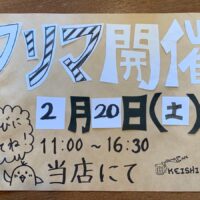 フリマ開催
2月20日(土)
11:00～16:30
当店にて
KEISHI